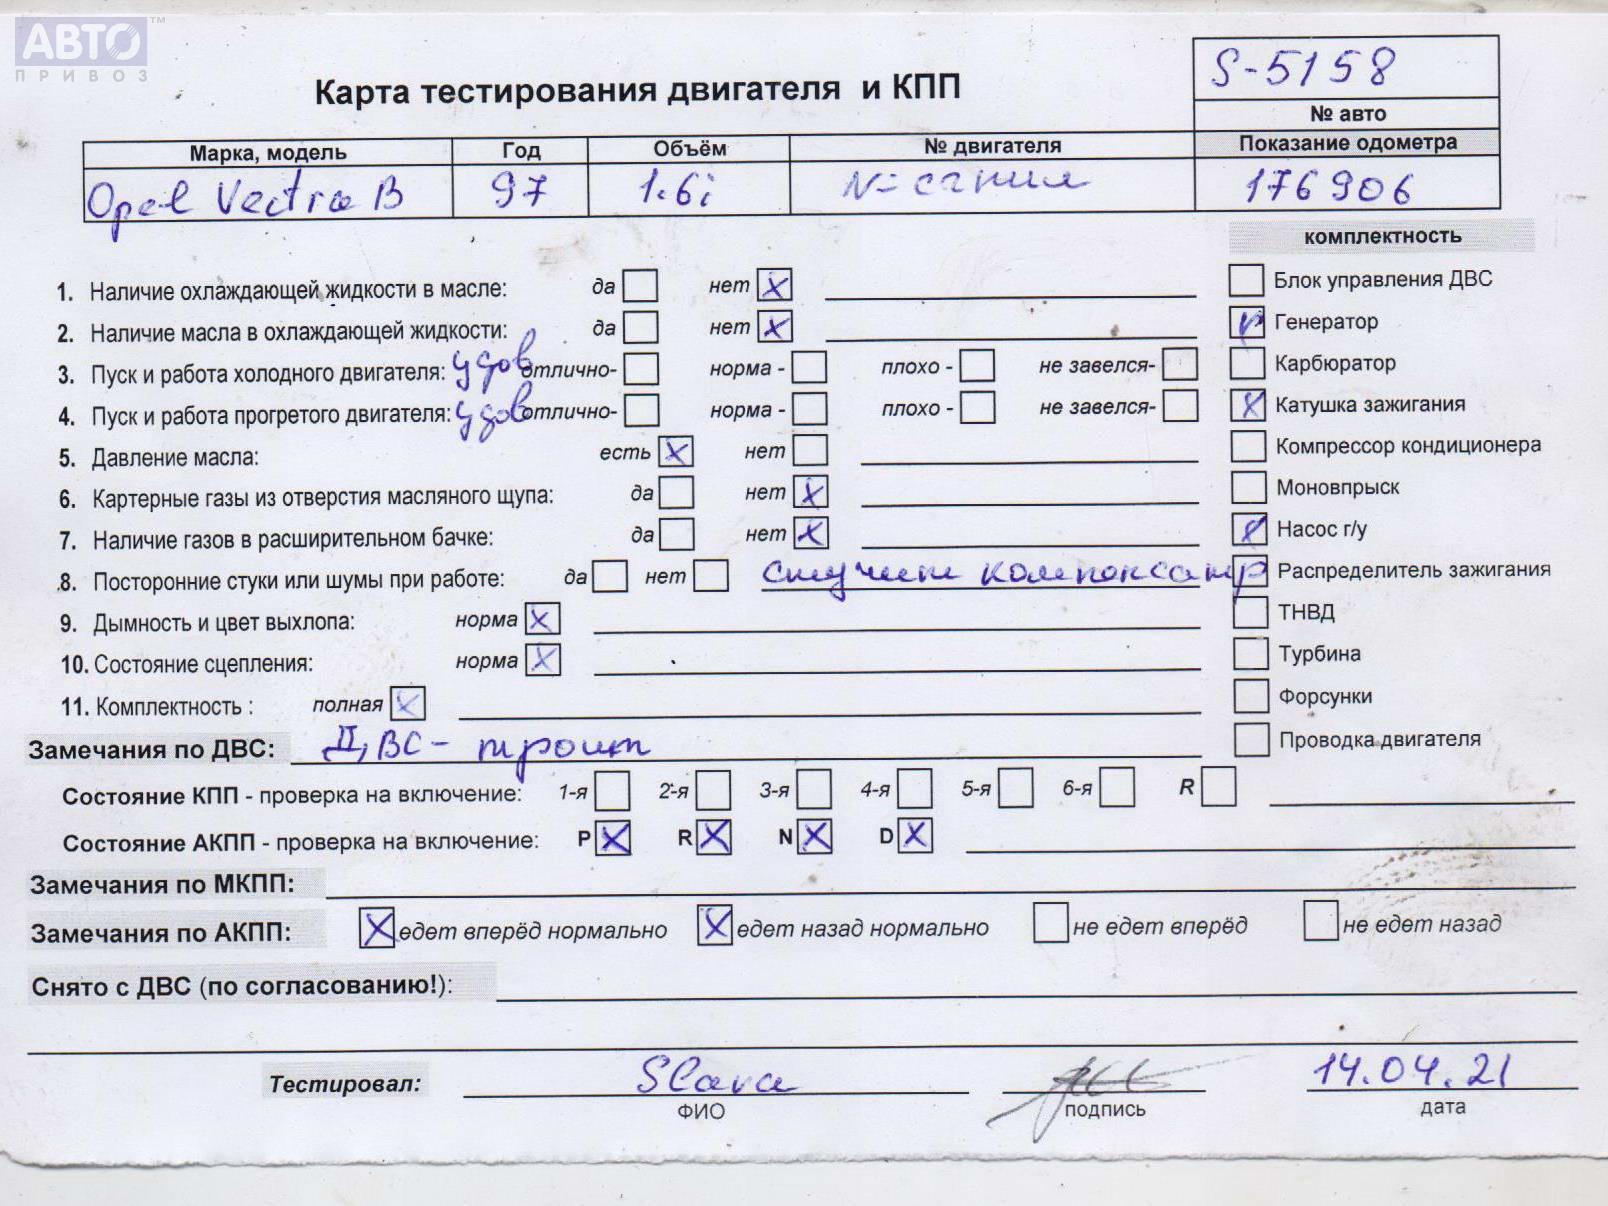 АВТО™
ПРИВОЗ
S-5158
Карта тестирования двигателя и КПП
№ авто
Марка, модель Год Объём № двигателя Показание одометра
Opel Vectra B 97 1.6i N- сгнил 176906
комплектность
1. Наличие охлаждающей жидкости в масле: да нет X
Блок управления ДВС
2. Наличие масла в охлаждающей жидкости: да нет X
Генератор
3. Пуск и работа холодного двигателя: удов отлично- норма - плохо - не завелся-
Карбюратор
4. Пуск и работа прогретого двигателя: удов отлично- норма - плохо - не завелся-
X Катушка зажигания
5. Давление масла: есть X нет
Компрессор кондиционера
6. Картерные газы из отверстия масляного щупа: да нет X
Моновпрыск
7. Наличие газов в расширительном бачке: да нет X
X Насос г/у
8. Посторонние стуки или шумы при работе: да нет стучит компенсатр
Распределитель зажигания
9. Дымность и цвет выхлопа: норма X
ТНВД
10. Состояние сцепления: норма X
Турбина
11. Комплектность : полная X
Форсунки
Замечания по ДВС: ДВС - троит
Проводка двигателя
Состояние КПП - проверка на включение: 1-я 2-я 3-я 4-я 5-я 6-я R
Состояние АКПП - проверка на включение: P X R X N X D X
Замечания по МКПП:
Замечания по АКПП: X едет вперёд нормально X едет назад нормально не едет вперёд не едет назад
Снято с ДВС (по согласованию!):
Тестировал: Slava 14.04.21
ФИО подпись дата